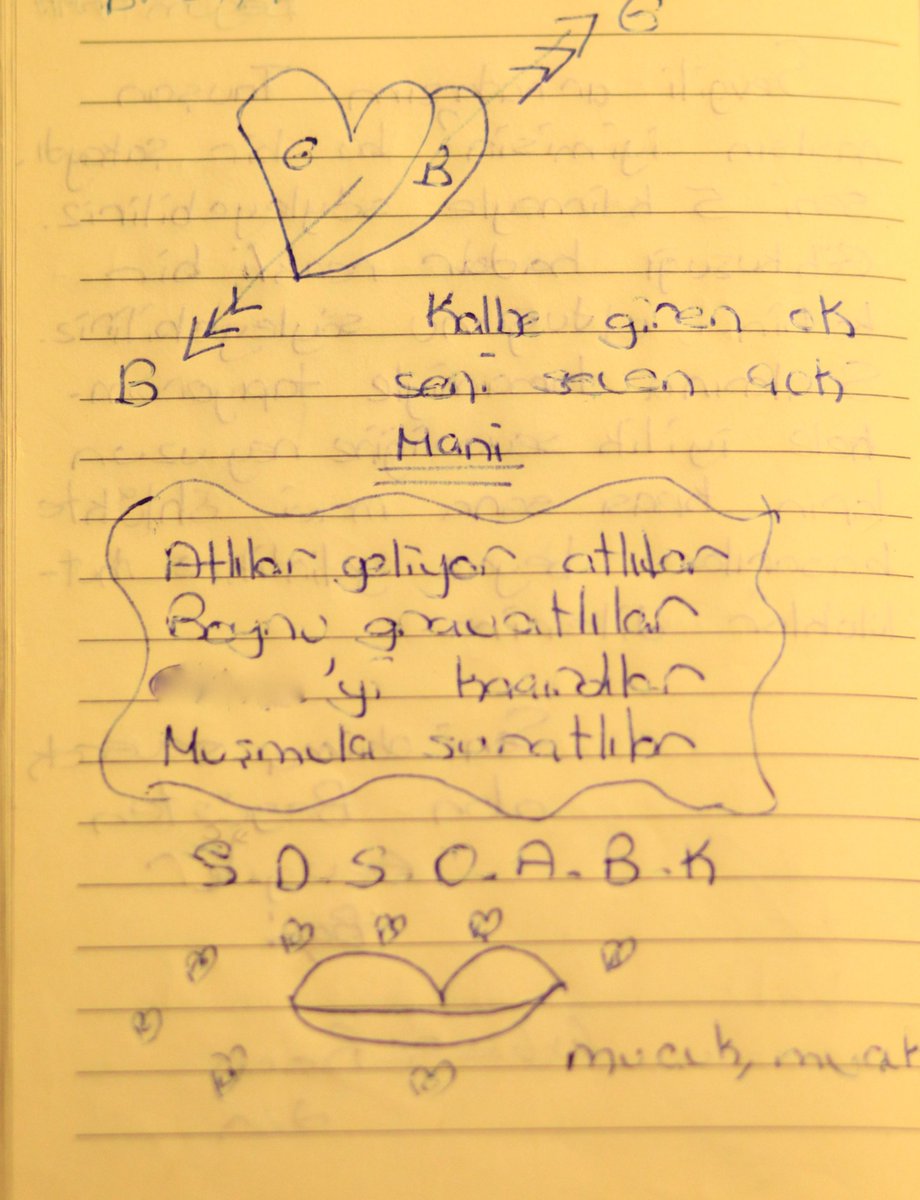 G
G
B
B
Kalbe giren ok
seni seven çok
Mani
Atlılar geliyor atlılar
Boynu gravatlılar
'yi kaçırdılar
Muşmula suratlılar
S.D.S.O.A.B.K
mucuk, mucuk